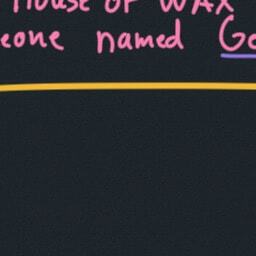 House of WAX
eone named Ge